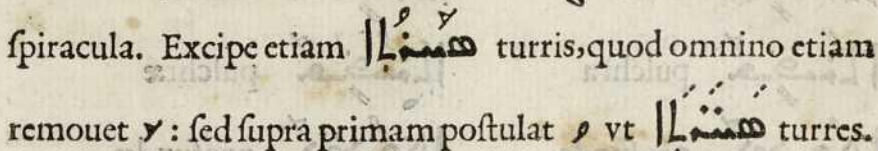 ſpiracula. Excipe etiam turris, quod omnino etiam
remouet : ſed ſupra primam poſtulat vt turres.